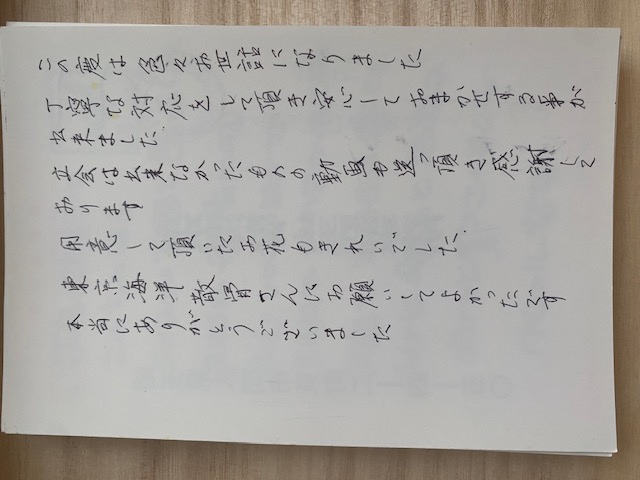 この度は色々お世話になりました
丁寧な対応をして頂き安心しておまかせする事が
出来ました。
立会は出来なかったものの動画も送って頂き感謝して
おります
用意して頂いたお花もきれいでした。
東京海洋散骨さんにお願いしてよかったです
本当にありがとうございました